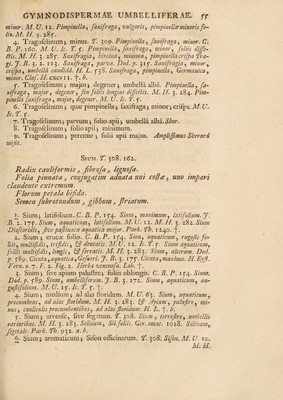 GYMNODISPERMÆ UMBELLIFERÆ. 55
minor. M. U. 12. Pimpinella, saxifraga, vulgaris, pimpinellæminoris fo-
lio. M. H. 3. 285.
4. Tragoselinum; minus. T. 309. Pimpinella, saxifraga, minor. C.
B. P. 160. M. U. Ic. T. 5. Pimpinella, saxifraga, minor, foliis disse-
ctis. M. H. 3. 285. Saxifragia, hircina, minima, pimpinella crispa Tra-
gi. J. B. 2. 113. Saxifraga, parva. Dod. p. 315. Saxifragia, minor,
crispa, umbella candida. H. L. 538. Saxifraga, pimpinella, Germanica,
minor. Clus. H. cxcvii. †. b.
5. Tragoselinum; majus; degener; umbellâ albâ. Pimpinella, sa-
xifraga, major, degener, seu foliis longius dissectis. M. H. 3. 284. Pim-
pinella, saxifraga, major, degener. M. U. Ic. T. 5.
6. Tragoselinum; quæ pimpinella; saxifraga; minor; crispa. M. U.
Ic. T. 5.
7. Tragoselinum; parvum; folio apii; umbellâ albâ. Sher.
8. Tragoselinum; folio apii; minimum.
9. Tragoselinum; perenne; folii apii major. Amplissimus Sherard
misit.
SIUM. T. 308. 162.
Radix cauliformis, fibrosa, lignosa.
Folia pinnata, conjugatim adnata uni costæ, uno impari
claudente extremum.
Florum petala bifida.
Semen subrotundum, gibbum, striatum.
1. Sium; latifolium. C. B. P. 154. Sium, maximum, latifolium. J.
B. 2. 175. Sium, aquaticum, latifolium. M. U. 12. M. H. 3. 282. Sium
Dioscoridis, sive pastinaca aquatica major. Park. Tb. 1240. †.
2. Sium; erucæ folio. C. B. P. 154. Sium, aquaticum, rugosis fo-
liis, multifidis, trifidis, & dentatis. M. U. 12. Ic. T. 5. Sium aquaticum,
foliis multifidis, longis, & serratis. M. H. 3. 283. Sium, alterum. Dod.
p. 589. Cicuta, aquatica, Gesneri. J. B. 3. 175. Cicuta, maxima. H. Eyst.
Vern. o. 7. F. 2. Fig. 2. Herba venenosa. Lob. †.
3. Sium; sive apium palustre; foliis oblongis. C. B. P. 154. Sium.
Dod. p. 589. Sium, umbelliferum. J. B. 3. 172. Sium, aquaticum, an-
gustifolium. M. U. 15. Ic. T. 5. †.
4. Sium; medium; ad alas floridum. M. U. 63. Sium, aquaticum,
procumbens, ad alas floridum. M. H. 3. 283. & Apium, palustre, mi-
nus, cauliculis procumbentibus, ad alas floridum. H. L. †. b.
5. Sium; arvense, sive segetum. T. 308. Sium, terrestre, umbellis
rarioribus. M. H. 3. 283. Selinum, Sii foliis. Ger. emac. 1018. Selinum,
segetale. Park. Tb. 932. a. b.
6. Sium; aromaticum; Sison officinarum. T. 308. Sison. M. U. 12.
M. H.